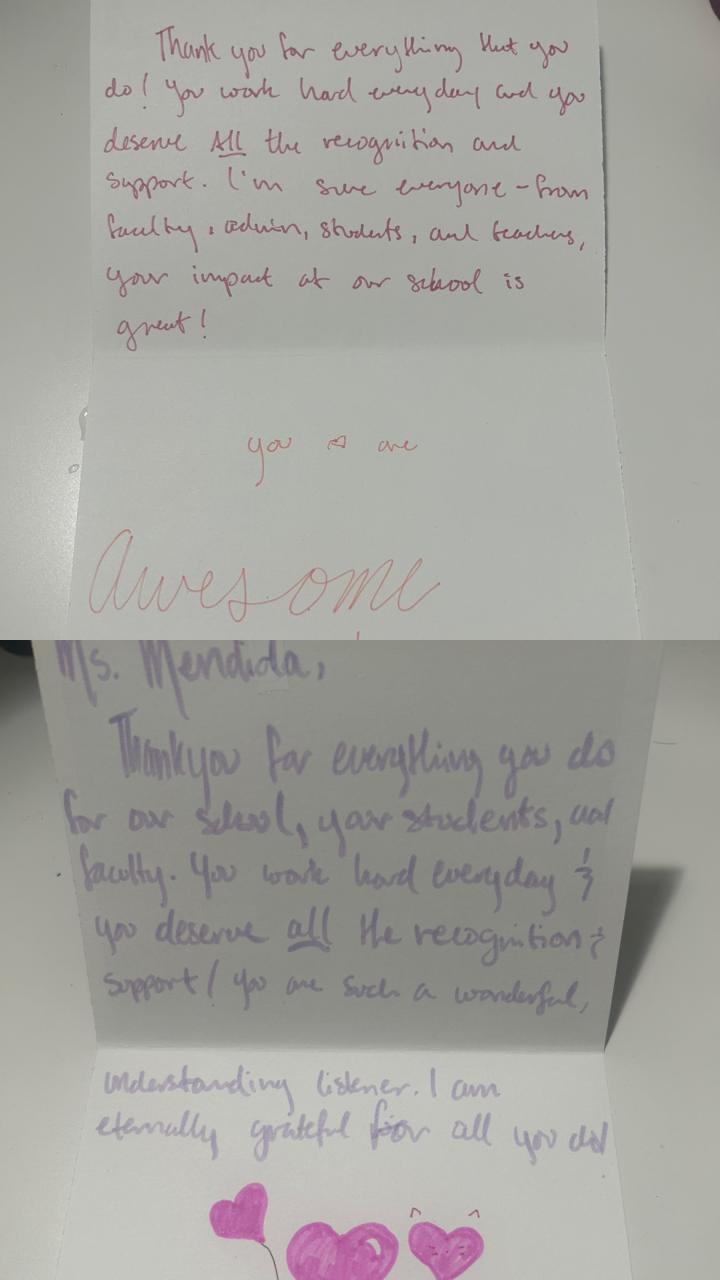 Thank you for everything that you
do! You work hard everyday and you
deserve All the recognition and
support. I'm sure everyone - from
faculty, admin, students, and teachers,
your impact at our school is
great!
you are
Awesome
Ms. Mendiola,
Thankyou for everything you do
for our school, your students, and
faculty. You work hard everyday &
you deserve all the recognition &
support! You are such a wonderful,
understanding listener. I am
eternally grateful for all you do!